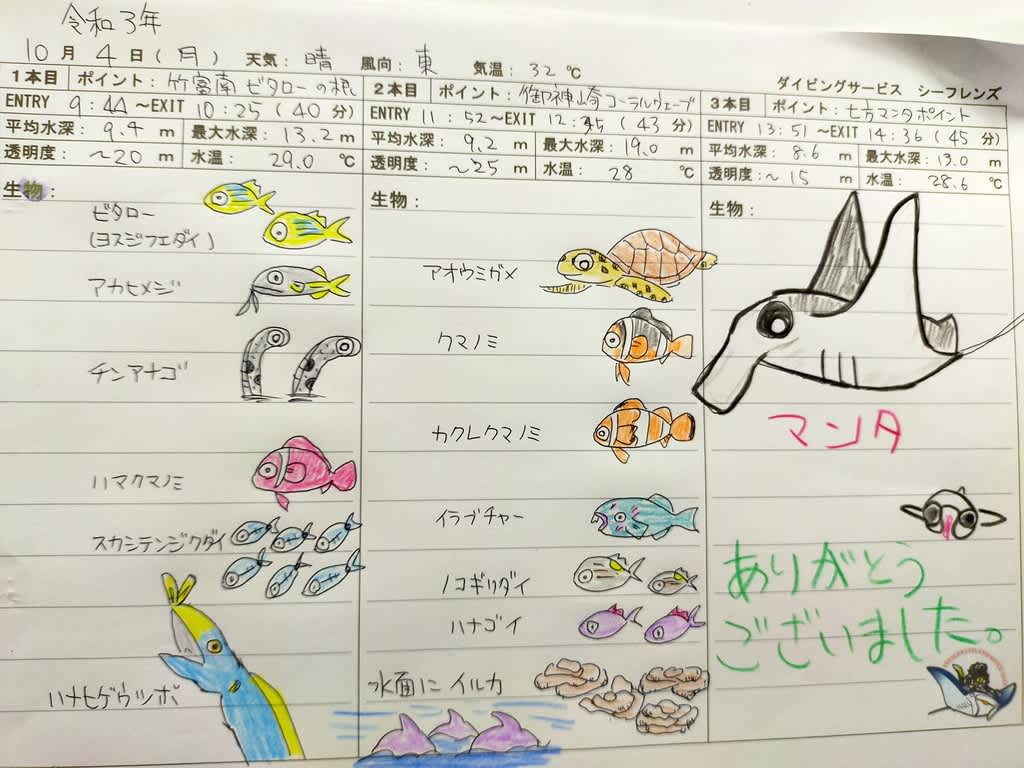 令和3年
10月 4日(月) 天気: 晴 風向: 東 気温: 32℃
ダイビングサービス シーフレンズ
1本目 ポイント: 竹富南 ビタローの根
ENTRY 9:44～EXIT 10:25(40分)
平均水深: 9.4 m 最大水深: 13.2 m
透明度: ～20 m 水温: 29.0 ℃
生物:
ビタロー
(ヨスジフエダイ)
アカヒメジ
チンアナゴ
ハマクマノミ
スカシテンジクダイ
ハナヒゲウツボ
2本目 ポイント: 御神崎 コーラルウェーブ
ENTRY 11:52～EXIT 12:35(43分)
平均水深: 9.2 m 最大水深: 19.0 m
透明度: ～25 m 水温: 28 ℃
生物:
アオウミガメ
クマノミ
カクレクマノミ
イラブチャー
ノコギリダイ
ハナゴイ
水面に イルカ
3本目 ポイント: 七方マンタポイント
ENTRY 13:51～EXIT 14:36(45分)
平均水深: 8.6 m 最大水深: 13.0 m
透明度:～ 15 m 水温: 28.6 ℃
生物:
マンタ
ありがとう
ございました。